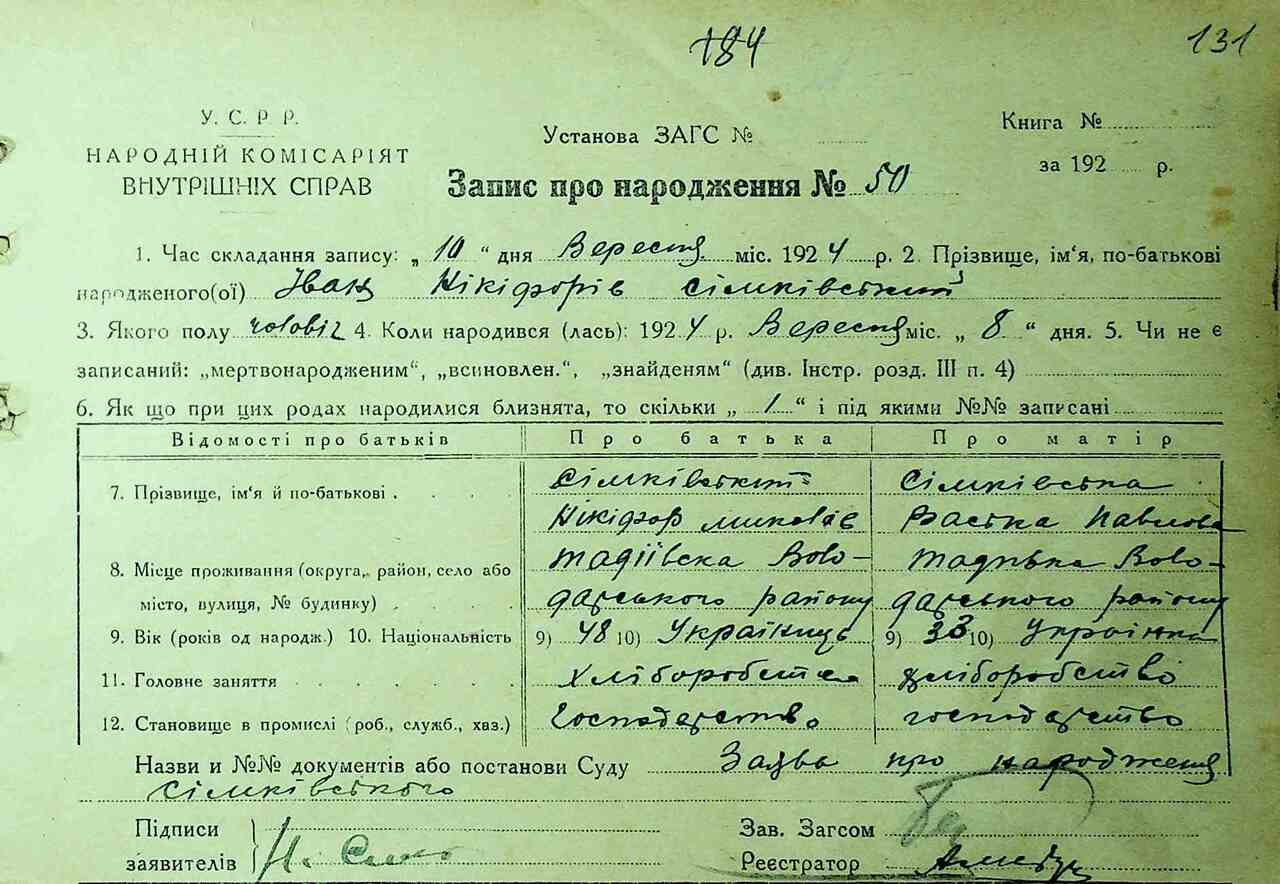 184 131
У. С. Р Р.
НАРОДНІЙ КОМІСАРІЯТ
ВНУТРІШНІХ СПРАВ
Установа ЗАГС №
Книга №
за 192 р.
Запис про народження № 50
1. Час складання запису: „ 10 “ дня Вересня міс. 1924 р. 2. Прізвище, ім‘я, по-батькові
народженого(ої) Іван Нікіфорів Сімківський
3. Якого полу 4. Коли народився (лась): 1924 р. Вересня міс. „ 8 “ дня. 5. Чи не є
записаний: „мертвонародженим“, „всиновлен.“, „знайденям“ (див. Інстр. розд. III п. 4)
6. Як що при цих родах народилися близнята, то скільки „ 1 “ і під якими №№ записані
Відомості про батьків Про батька Про матір
7. Прізвище, ім‘я й по-батькові . Сімківський Сімківська
Нікіфор Васька Павлова
8. Місце проживання (округа, район, село або Воло- Воло-
місто, вулиця, № будинку) дарського району дарського району
9. Вік (років од народж.) 10. Національність 9) 48 10) Українець 9) 33 10) Українка
11. Головне заняття хліборобство хліборобство
12. Становище в промислі (роб., служб., хаз.) господарство господарство
Назви и №№ документів або постанови Суду Заява про народженя
Сімківського
Підписи
заявителів
Зав. Загсом
Реєстратор